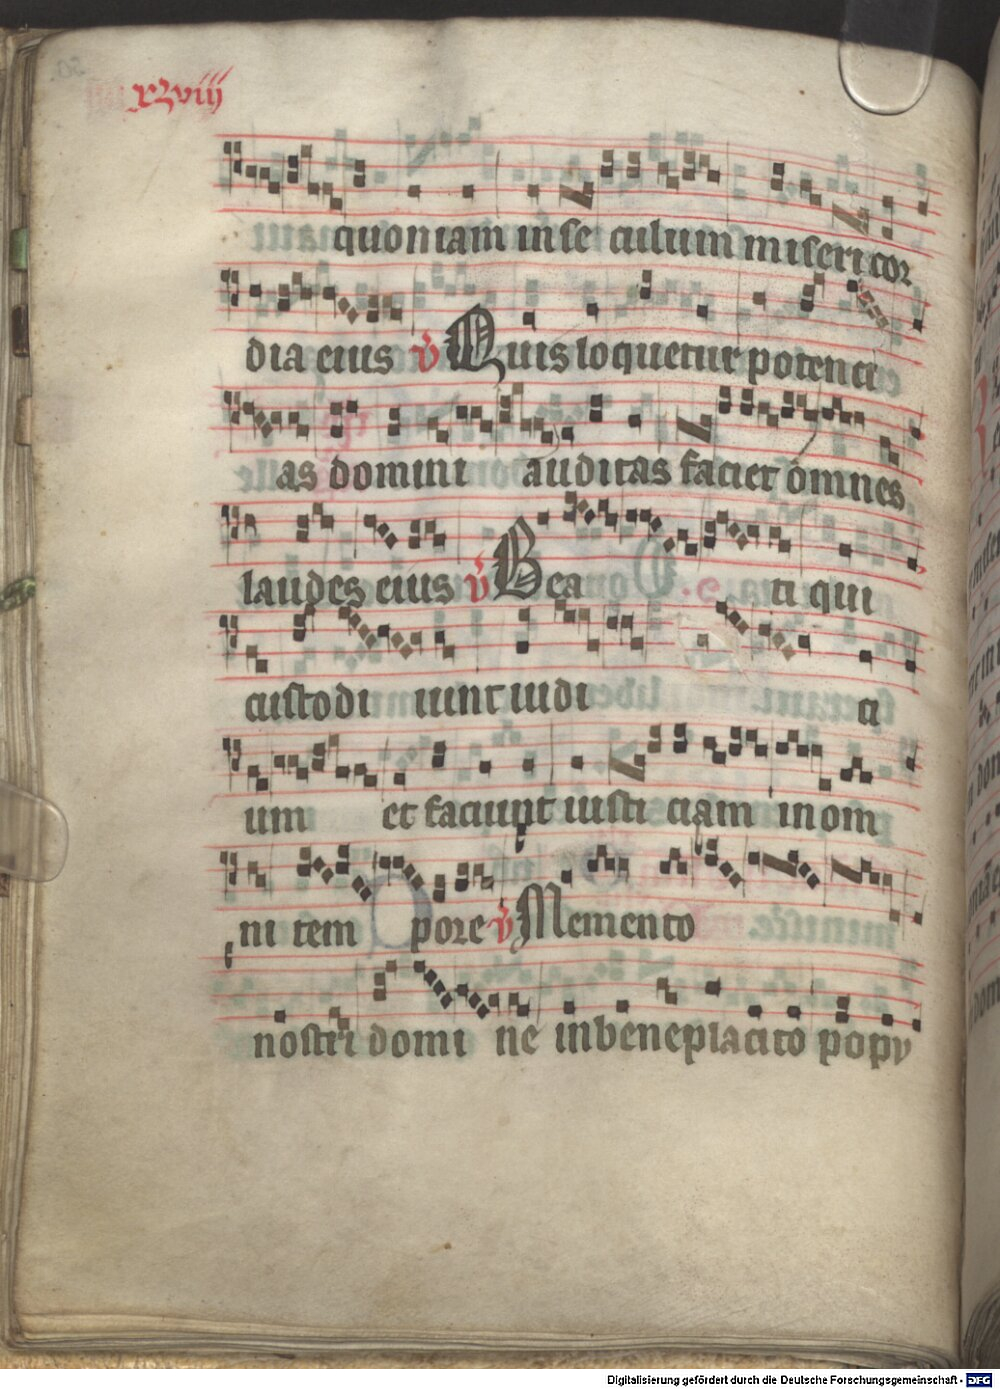 xlviii
quoniam inse culum miseri cor
dia eius v Quis loquetur potenci
as domini auditas faciet omnes
laudes eius v Bea ti qui
custodi iunt iudi ci
um et faciunt iusti ciam inom
ni tem pore v Memento
nostri domi ne inbeneplacito popu
Digitalisierung gefördert durch die Deutsche Forschungsgemeinschaft - DFG